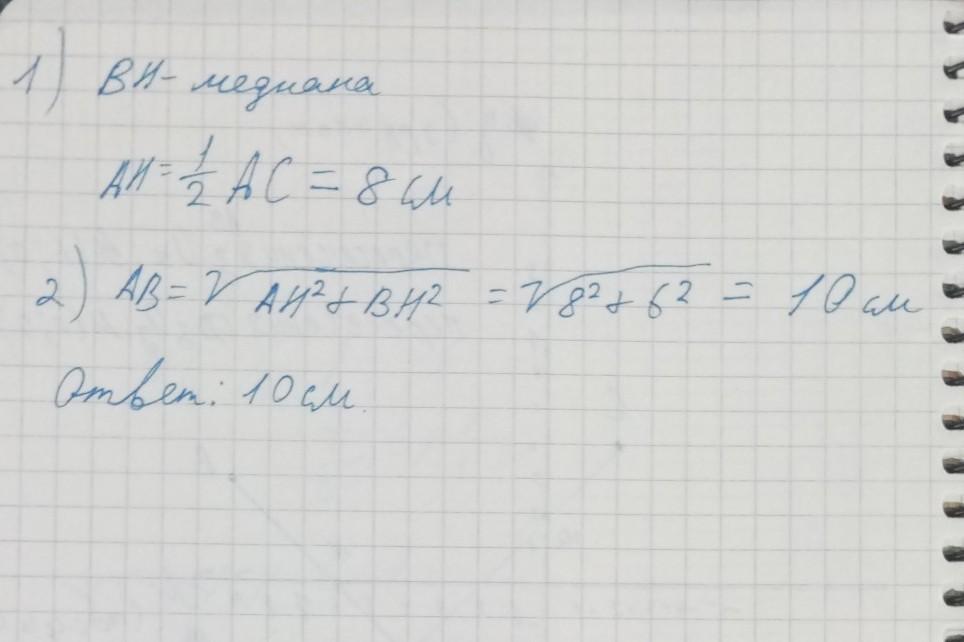 1) BH - медиана
AH = 1/2 AC = 8 см
2) AB = √(AH² + BH²) = √(8² + 6²) = 10 см
Ответ: 10 см.